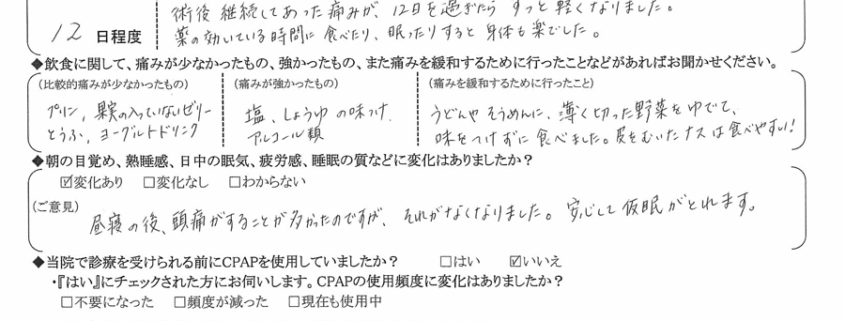 術後継続してあった痛みが、12日を過ぎたらすっと軽くなりました。
12 日程度
薬の効いている時間に食べたり、眠ったりすると身体も楽でした。
◆飲食に関して、痛みが少なかったもの、強かったもの、また痛みを緩和するために行ったことなどがあればお聞かせください。
(比較的痛みが少なかったもの)
プリン、果実の入っていないゼリー
とうふ、ヨーグルトドリンク
(痛みが強かったもの)
塩、しょうゆの味つけ
アルコール類
(痛みを緩和するために行ったこと)
うどんやそうめんに、薄く切った野菜をゆでて、
味をつけずに食べました。皮をむいたナスは食べやすい!
◆朝の目覚め、熟睡感、日中の眠気、疲労感、睡眠の質などに変化はありましたか?
☑変化あり □変化なし □わからない
(ご意見)
昼寝の後、頭痛がすることが多かったのですが、それがなくなりました。安心して仮眠がとれます。
◆当院で診療を受けられる前にCPAPを使用していましたか? □はい ☑いいえ
・『はい』にチェックされた方にお伺いします。CPAPの使用頻度に変化はありましたか?
□不要になった □頻度が減った □現在も使用中